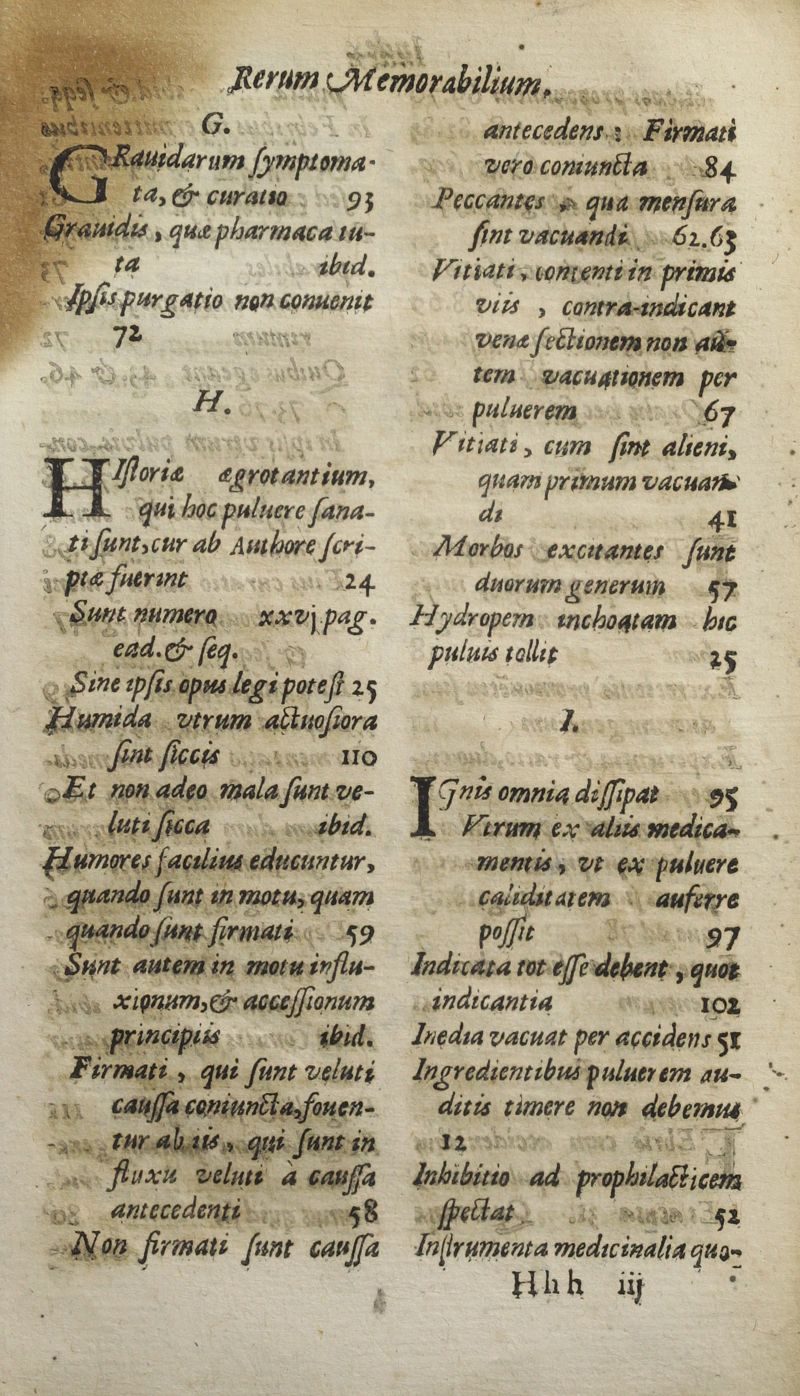 Rerum Memorabilium.
G.
GRauidarum ſymptoma-
ta, & curatio 93
Grauidis, quæ pharmaca tu-
ta ibid.
Ipſis purgatio non conuenit
72
H.
HIſtoriæ ægrotantium,
qui hoc puluere ſana-
ti ſunt, cur ab Authore ſcri-
ptæ fuerint 24
Sunt numero xxvj pag.
ead. & ſeq.
Sine ipſis opus legi poteſt 25
Humida vtrum actuoſiora
ſint ſiccis 110
Et non adeo mala ſunt ve-
luti ſicca ibid.
Humores facilius educuntur,
quando ſunt in motu, quam
quando ſunt firmati 59
Sunt autem in motu influ-
xionum, & acceſſionum
principiis ibid.
Firmati, qui ſunt veluti
cauſſa coniuncta, fouen-
tur ab iis, qui ſunt in
fluxu veluti à cauſſa
antecedenti 58
Non firmati ſunt cauſſa
antecedens: Firmati
vero coniuncta 84
Peccantes, qua menſura
ſint vacuandi 62.63
Vitiati, contenti in primis
viis, contra-indicant
venæ ſectionem non au-
tem vacuationem per
puluerem 67
Vitiati, cum ſint alieni,
quam primum vacuan-
di 41
Morbos excitantes ſunt
duorum generum 57
Hydropem inchoatam hic
puluis tollit 25
I.
IGnis omnia diſſipat 95
Vtrum ex aliis medica-
mentis, vt ex puluere
caliditatem auferre
poſſit 97
Indicata tot eſſe debent, quot
indicantia 102
Inedia vacuat per accidens 51
Ingredientibus puluerem au-
ditis timere non debemus
12
Inhibitio ad prophilacticem
ſpectat 52
Inſtrumenta medicinalia quo-
Hhh iij